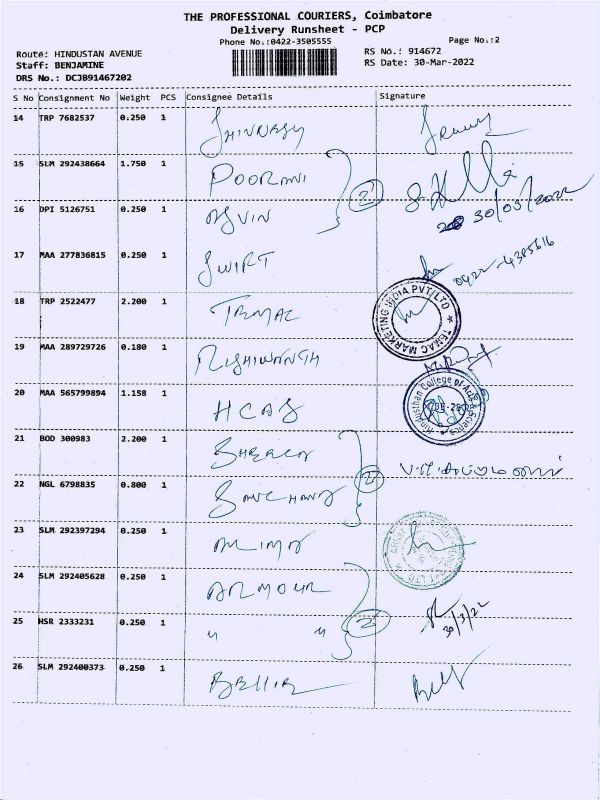 THE PROFESSIONAL COURIERS, Coimbatore
Delivery Runsheet - PCP
Phone No.:0422-3505555
Page No.:2
Route: HINDUSTAN AVENUE
RS No.: 914672
Staff: BENJAMINE
RS Date: 30-Mar-2022
DRS No.: DCJB91467202
S No Consignment No Weight PCS Consignee Details Signature
14 TRP 7682537 0.250 1
15 SLM 292438664 1.750 1 POORANI
16 DPI 5126751 0.250 1 ASVIN 2 30/03/2022
17 MAA 277836815 0.250 1 SWIFT 0422-4385616
18 TRP 2522477 2.200 1 TEMAC
TEMAC MARKETING INDIA PVT LTD
19 MAA 289729726 0.180 1 RISHIWANTH
20 MAA 565799894 1.158 1 HCAS
Hindusthan College of Arts & Science
21 BOD 300983 2.200 1
22 NGL 6798835 0.800 1 2
23 SLM 292397294 0.250 1
24 SLM 292405628 0.250 1 ARMOUR
25 HSR 2333231 0.250 1 " " 2 30/3/22
26 SLM 292400373 0.250 1